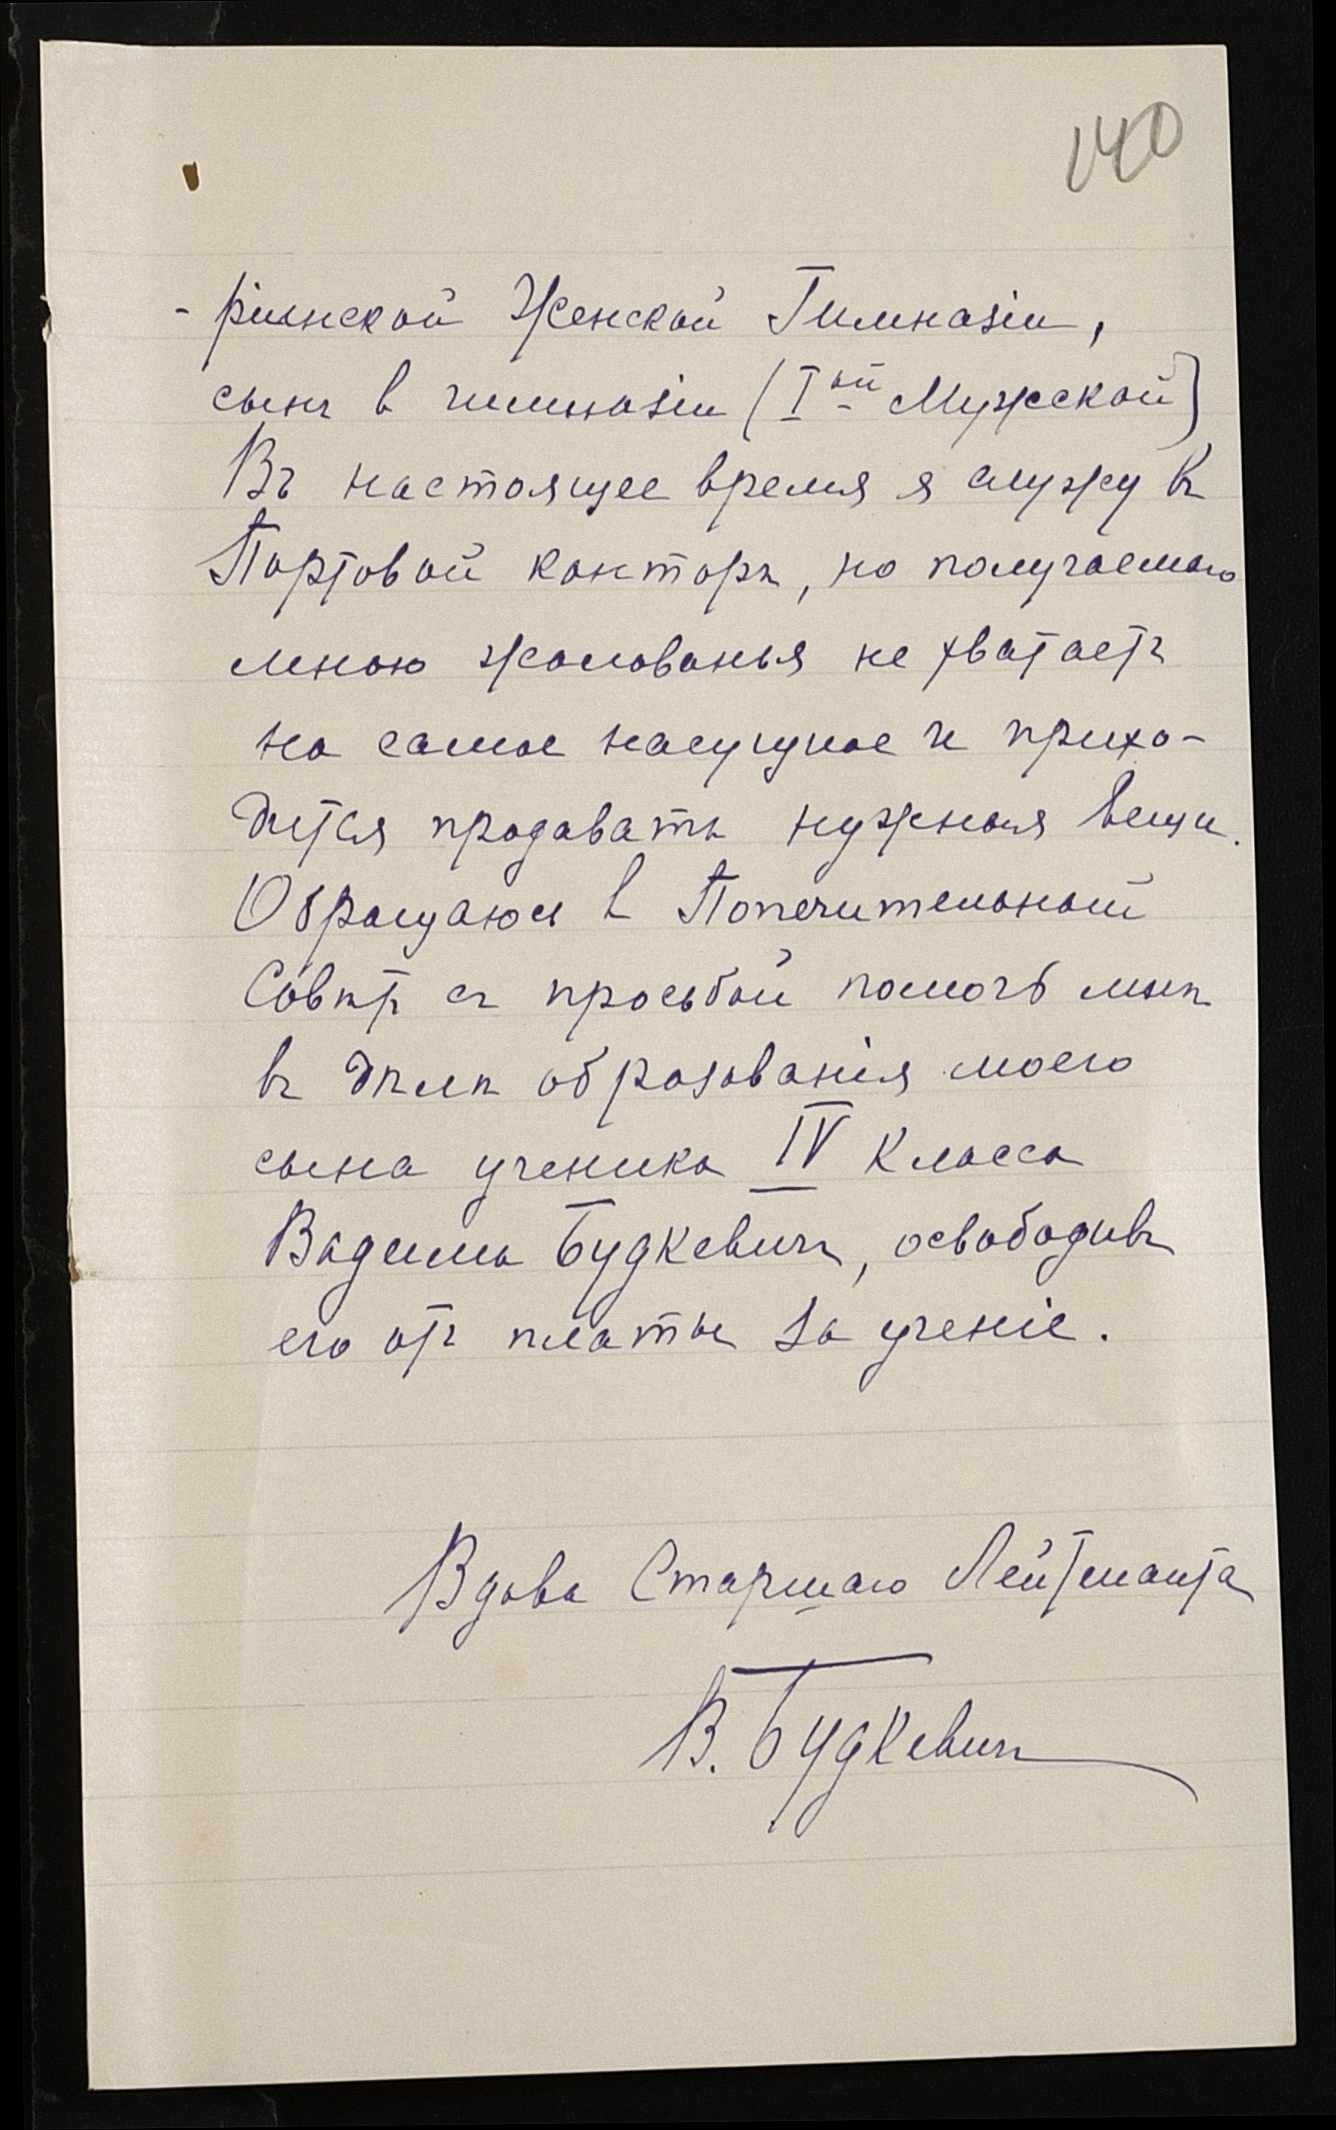 140
- ріинской Женской Гимназіи,
сынъ в гимназіи (Iой Мужской)
Въ настоящее время я служу въ
Портовой конторѣ, но получаемаго
мною жалованья не хватаетъ
на самое насущное и прихо-
дится продавать нужныя вещи.
Обращаюсь в Попечительный
Совѣтъ съ просьбой помочь мнѣ
въ дѣлѣ образованія моего
сына ученика IV класса
Вадима Будкевичъ, освободивъ
его отъ платы за ученіе.
Вдова Старшаго Лейтенанта
В. Будкевичъ